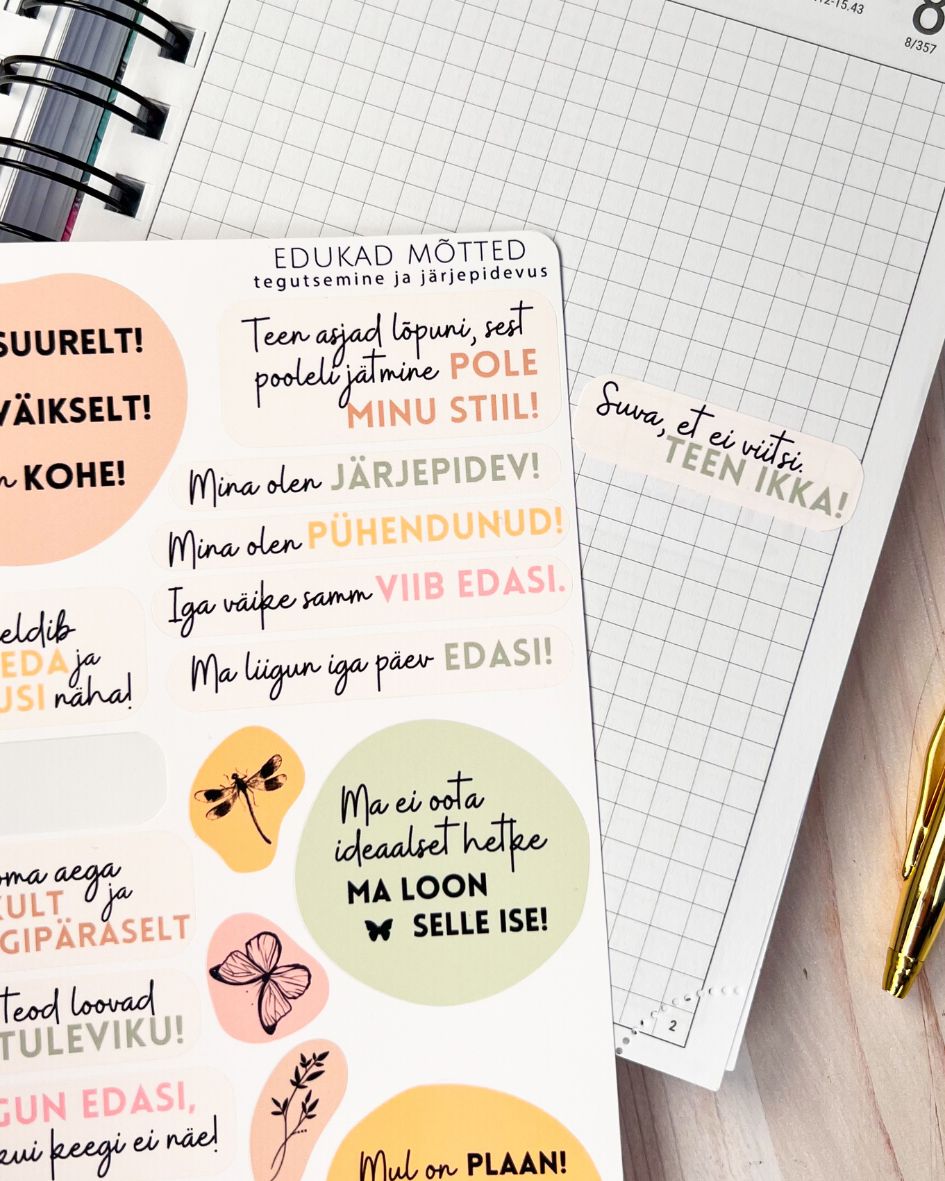 8
8/357
EDUKAD MÕTTED
tegutsemine ja järjepidevus
SUURELT!
VÄIKSELT!
KOHE!
Teen asjad lõpuni, sest
pooleli jätmine POLE
MINU STIIL!
Suva, et ei viitsi.
TEEN IKKA!
Mina olen JÄRJEPIDEV!
Mina olen PÜHENDUNUD!
Iga väike samm VIIB EDASI.
Ma liigun iga päev EDASI!
eldib
EDA ja
USI näha!
Ma ei oota
ideaalset hetke
MA LOON
SELLE ISE!
oma aega
KULT ja
GIPÄRASELT
teod loovad
TULEVIKU!
GUN EDASI,
kui keegi ei näe!
Mul on PLAAN!
2